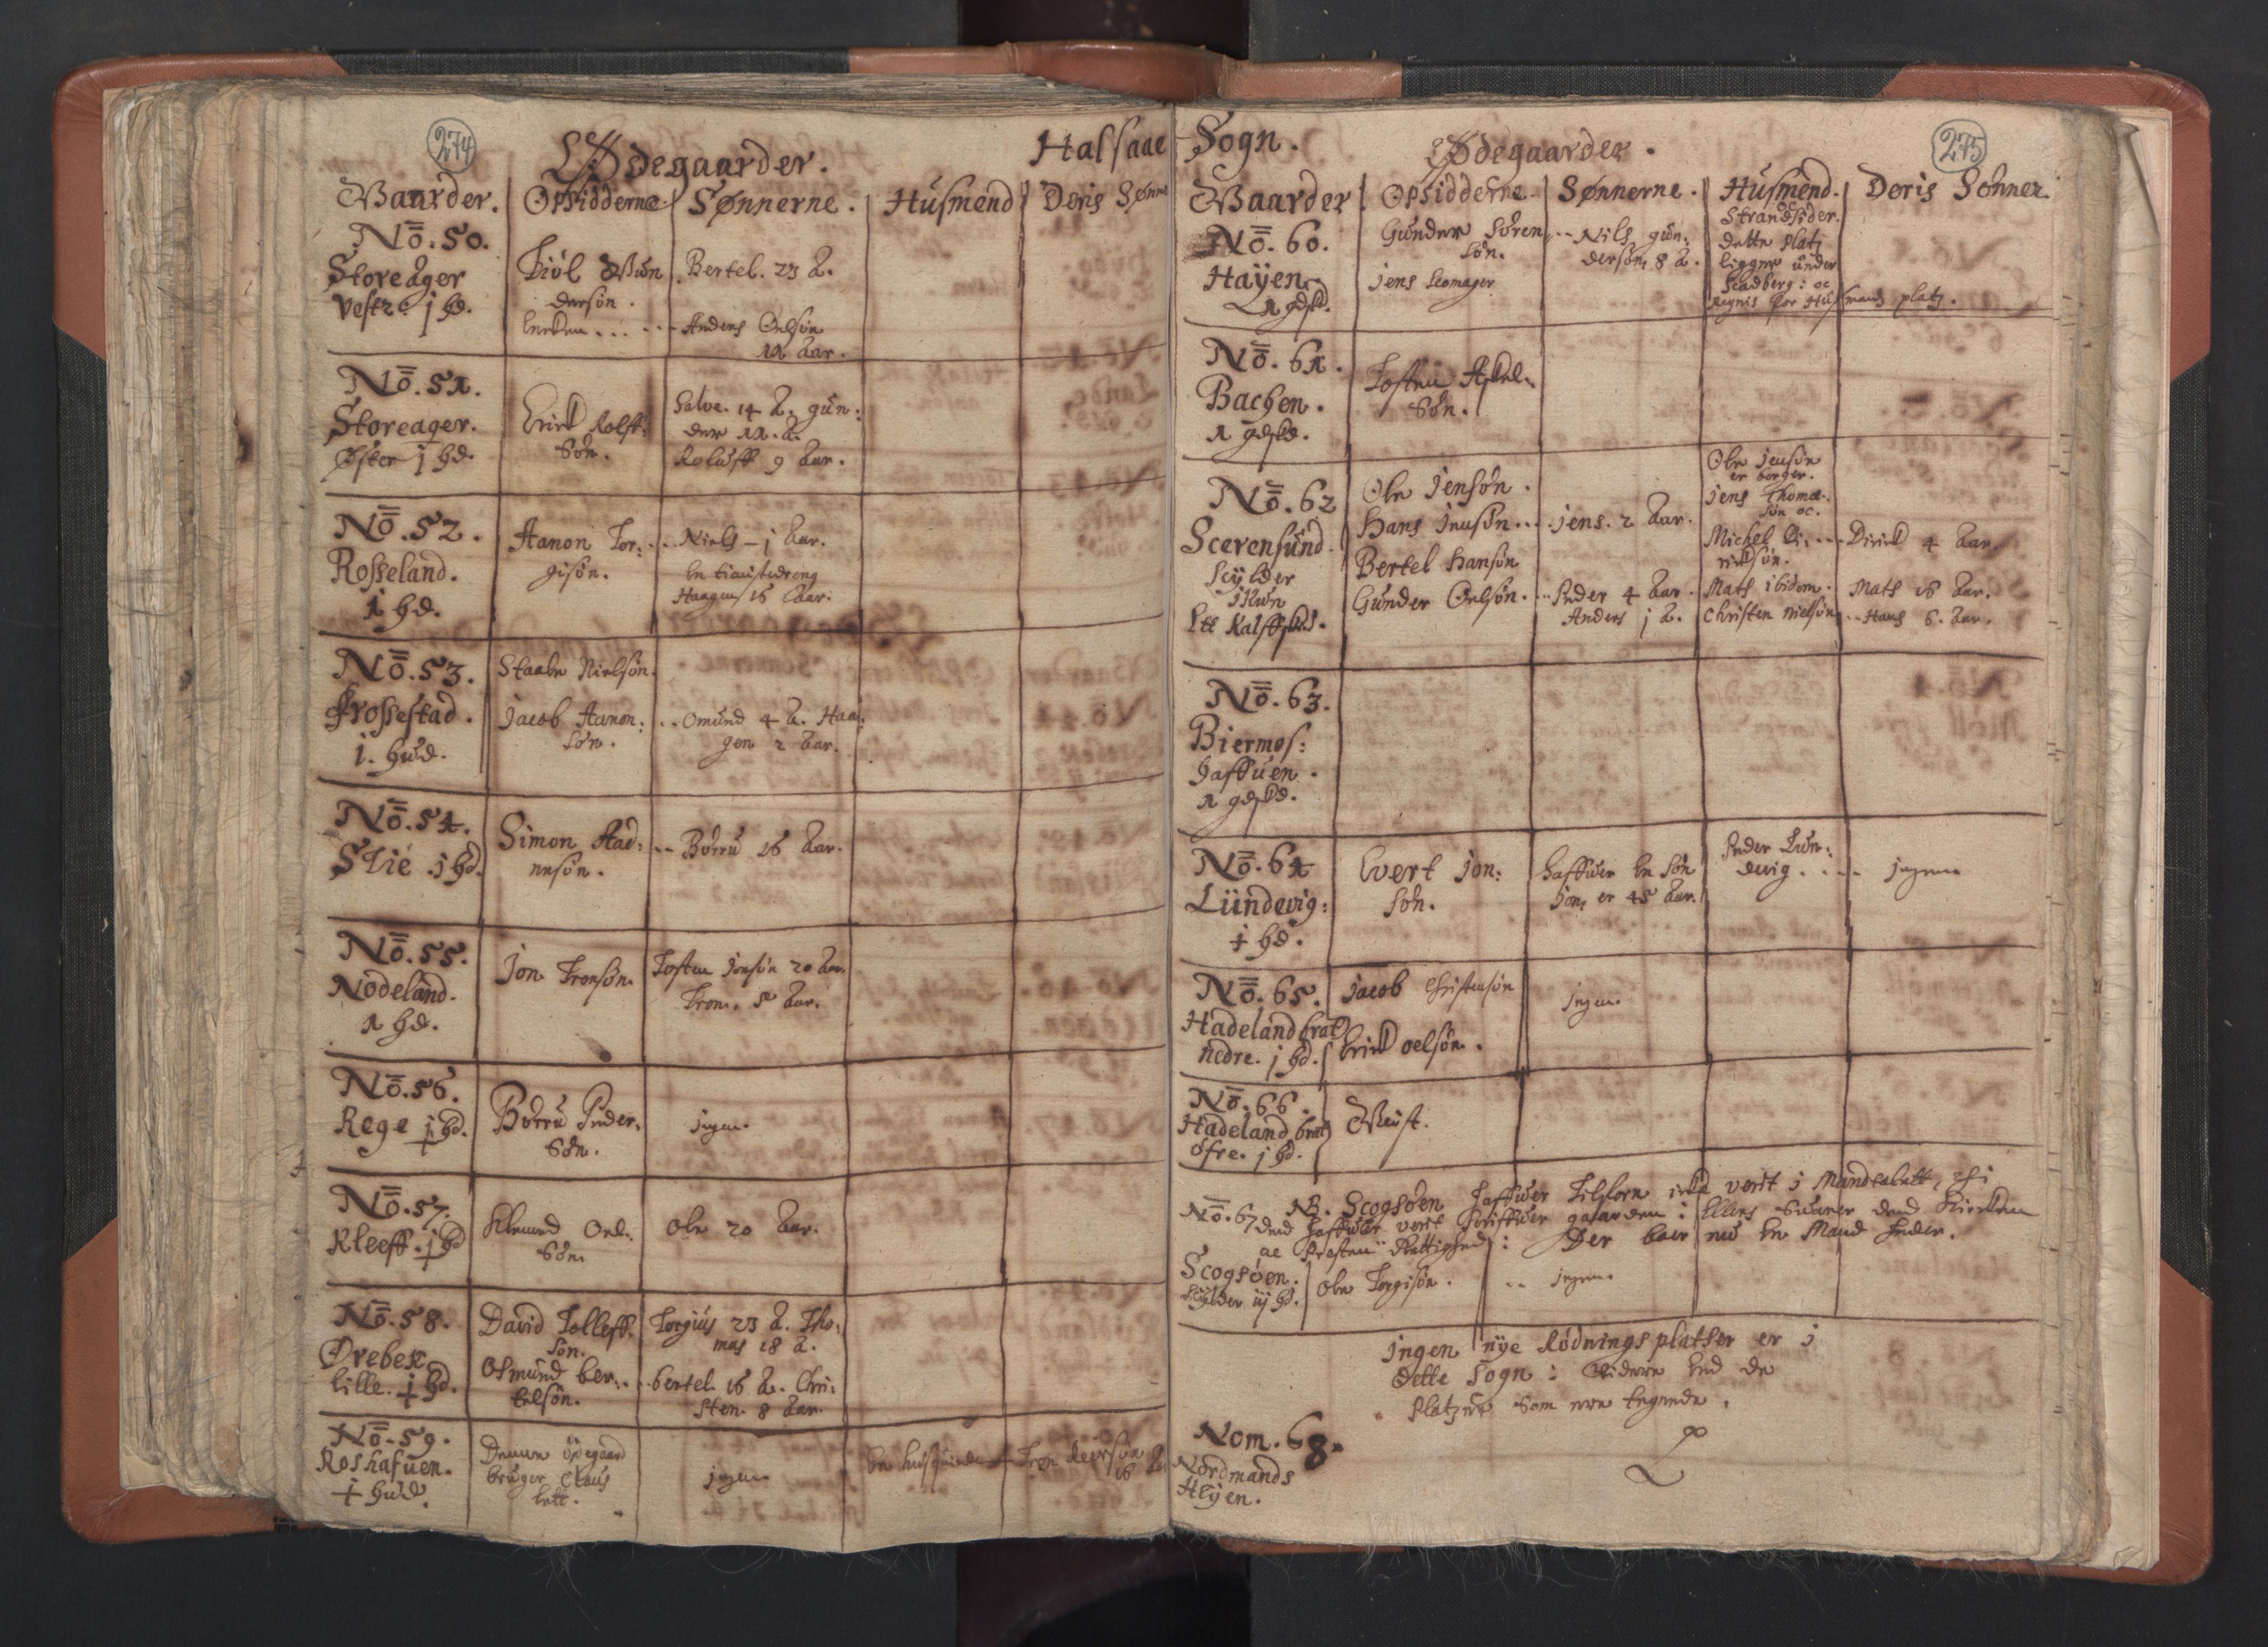 274
Ødegaarder.
Halsaae
Gaarder. Opsidderne. Sønnerne. Husmend Deris Sønne
No. 50.
Storeager
Vestre j hd.
Kiøl Gun
dersøn.
Bertel. 23 A.
Anders Oelsøn
12 Aar.
No. 51.
Storeager.
Øster j hd.
Erick Rolff
Søn.
Salve. 14 A. gun:
der 12. A.
Roluff 9 Aar.
No. 52.
Rosseland.
1 hd.
Aanon Tor:
gisøn.
Niels - j Aar.
En tienistedreng
Haagen 16 Aar.
No. 53.
Frossestad.
1. hud.
Staale Nielsøn.
Jacob Aanon:
Søn.
Omund 4 A. Haa:
gen 2 Aar.
No. 54.
Stie. j hd.
Simon Aad:
nesøn.
Børru 16 Aar.
No. 55.
Nodeland.
1 hd.
Jon Tronsøn.
Tosten Jonsøn 20 Aar.
Tron. 5 Aar.
No. 56.
Rege j hd.
Børru Peder:
Søn.
jngen.
No. 57.
Kleeff. j hd
Klemend Oel:
Søn.
Ole 20 Aar.
No. 58.
Ørebeck
lille. j hd.
David Tolleff
søn.
Osmund Ber:
telsøn.
Torgius 23 A. Tho:
mas 18 A.
bertel 16 A. Chri:
sten. 8 Aar.
No. 59.
Roshafuen.
hud.
Denne ödegaard
bruger Claus
jngen
En husquinde
Tron
16 A
275
Sogn.
Ødegaarder.
Gaarder. Opsidderne. Sønnerne. Husmend. Deris Sønner.
oc
Strandsider.
No. 60.
Haÿen
1 gdsk.
Gunder Sören
Søn.
jens
Nils gun:
dersøn 8 A.
dette platz
ligger under
Scadberg: oc
Regnis for Husmands platz.
No. 61.
Bachen.
1 gdsk.
Tosten Askel:
Søn.
No. 62
Scerensund.
Scÿlder
ikun
Ltt Kalfskd.
Ole Jensøn.
Hans Jensøn
Bertel Hansøn
Gunder Oelsøn.
jens. 2 Aar.
Peder 4 Aar.
Anders j A.
Ole Jensøn
er borger.
jens Thoma
søn oc.
Michel Di
ricksøn.
Mats ibidem.
Christen Nielsøn
Dirick 4 Aar.
Mats 16 Aar.
Hans 6. Aar.
No. 63.
Biermos:
haffuen.
1 gdsk.
No. 64
Lundevig:
j hd.
Evert Jon:
Søn.
haffuer En Søn
Jon, er 45 Aar.
Peder Lun:
devig.
jngen
No. 65.
Hadeland brat
nedre. j hd.
Jacob Christensøn
Erick Oelsøn.
jngen.
No. 66.
Hadeland brat
öfre. j hd.
Øeist.
No. 67
NB. Scogsøen haffuer Tilforn icke verit j Mandtalett, thi
dend haffuer verit gaarden: Ellers Suarer dend Kircken
oc Presten Rettighed: Der boer nu En Mand heder.
Scogsøen.
Scÿlder ij hd.
Ole Torgisøn.
jngen.
jngen nÿe Rødnings platser er j
dette Sogn: Videre End de
Platzer Som ere tegnede.
Nom. 68.
Nordmands
Hejen.